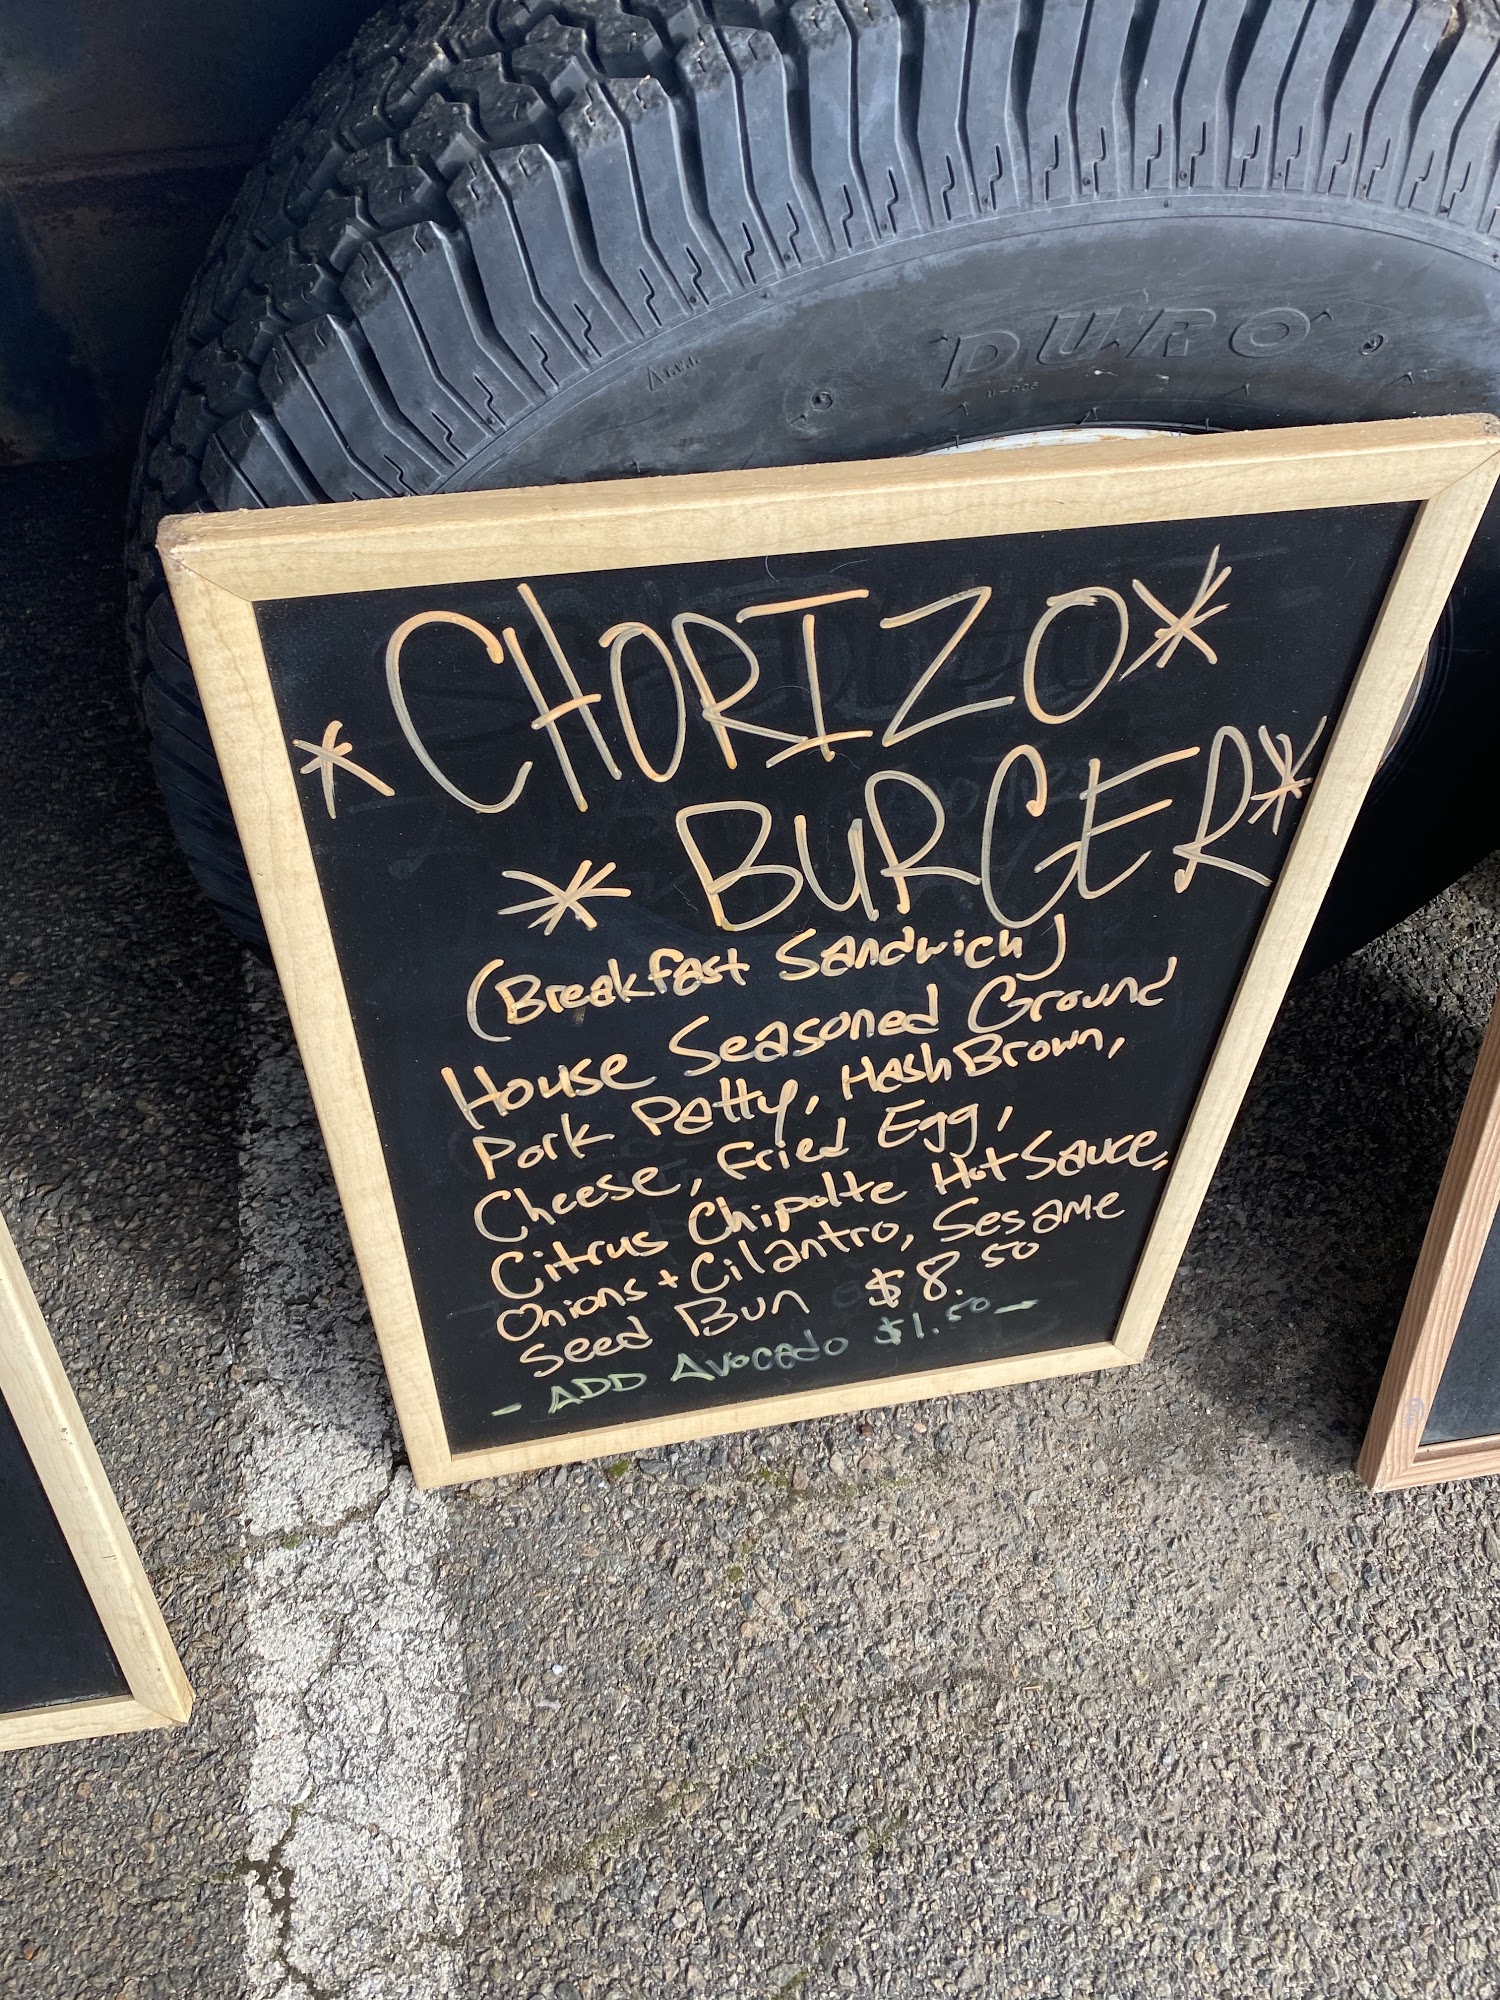 DURO
*CHORIZO*
*BURGER*
(Breakfast Sandwich)
House Seasoned Ground
Pork Patty, Hash Brown,
Cheese, Fried Egg,
Citrus Chipolte Hot Sauce,
Onions + Cilantro, Sesame
Seed Bun $8.50
- ADD Avocado $1.50 -